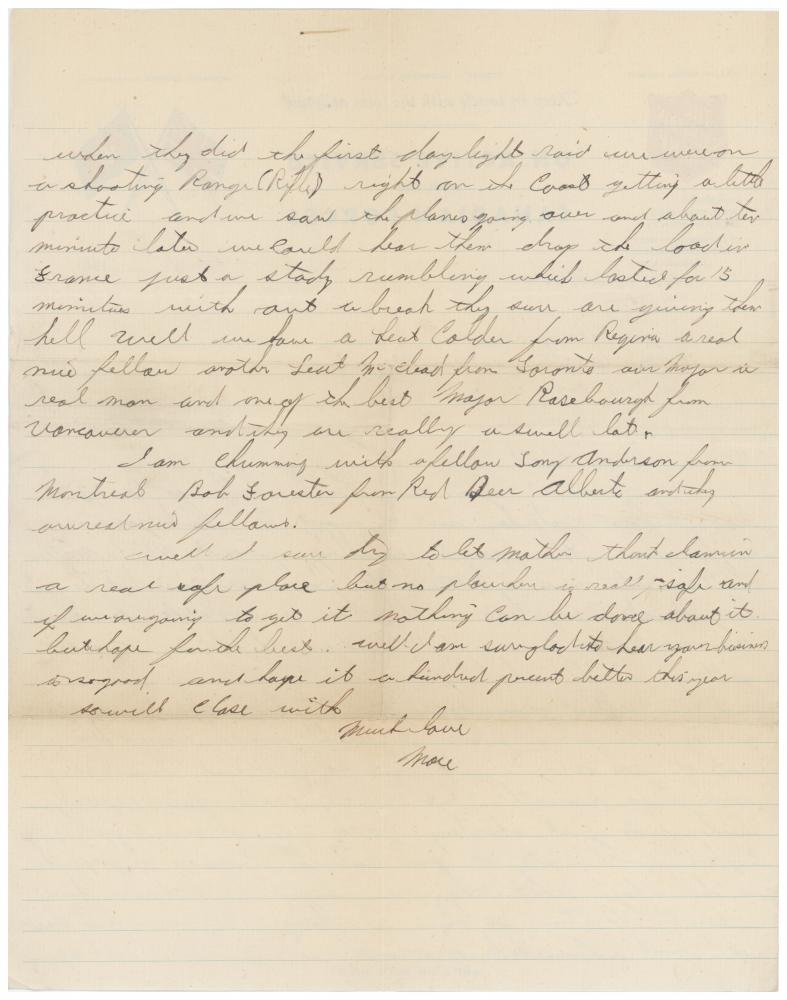 when they did the first daylight raid we were on
a shooting Range (Rifle) right on the Coast getting a little
practice and we saw the planes going over and about ten
minute later we could hear them drop the load in
France just a study rumbling which lasted for 15
minitues with out a break they sure are giving them
hell well we have a Leut Calder from Regina a real
nice fellow another Leut McLead from Toronto our Major is
real man and one of the best Major Rosebourgh from
Vancouver and they are really a swell lot.
I am Chumming with a fellow Tony Anderson from
Montreal Bob Forester from Red Deer Alberta and they
are real nice fellows.
well I sure try to let Mother think I am in
a real safe place but no place here is really safe and
if we are going to get it nothing can be done about it
but hope for the best. well I am sure glad to hear your business
is so good and hope it a hundred percent better this year
so will Close with
Much love